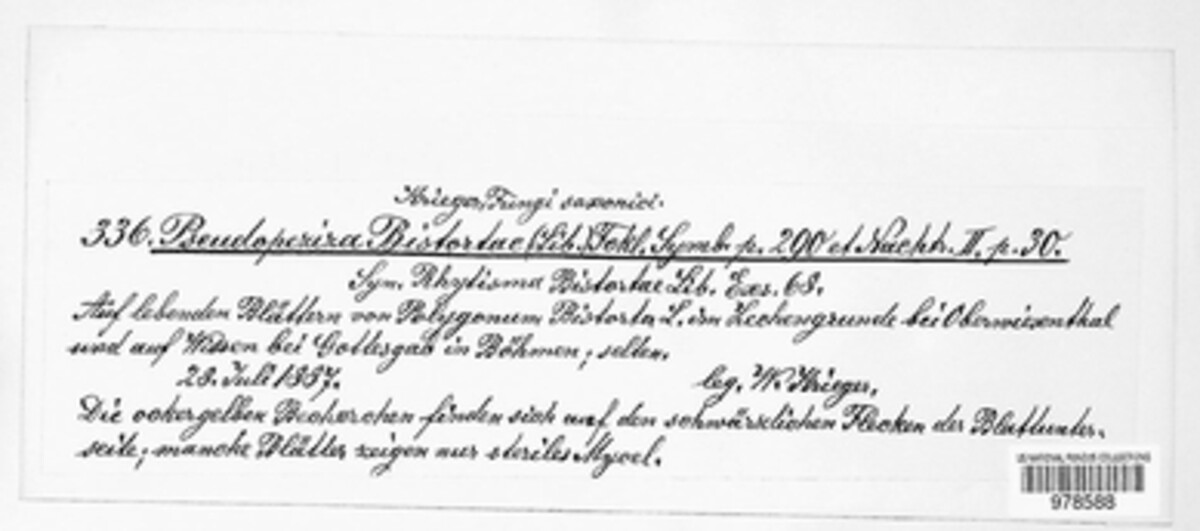 Krieger, Fungi saxonici.
336. Pseudopeziza Bistortae (Lib.) Fckl. Symb. p. 290 et Nachtr. II. p. 30.
Syn. Rhytisma Bistortae Lib. Exs. 68.
Auf lebenden Blättern von Polygonum Bistorta L. im Zechengrunde bei Oberwiesenthal
und auf Wiesen bei Gottesgab in Böhmen; selten.
28. Juli 1887. leg. W. Krieger.
Die ockergelben Becherchen finden sich auf den schwärzlichen Flecken der Blattunter-
seite; manche Blätter zeigen nur steriles Mycel.
US NATIONAL FUNGUS COLLECTIONS
978588